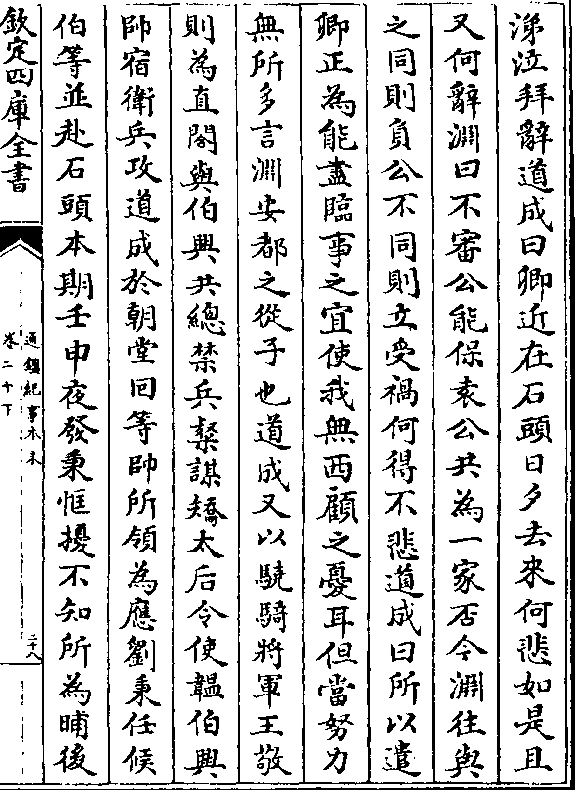 涕泣拜辭道成曰卿近在石頭日夕去來何悲如是且
又何辭淵曰不審公能保袁公共為一家否今淵往與
之同則負公不同則立受禍何得不悲道成曰所以遣
卿正為能盡臨事之宜使我無西顧之憂耳但當努力
無所多言淵安都之從子也道成又以驍騎將軍王敬
則為直閤與伯興共總禁兵粲謀矯太后令使韞伯興
帥宿衛兵攻道成於朝堂回等帥所領為應劉秉任候
伯等並赴石頭本期壬申夜發秉恇擾不知所為晡後
欽定四庫全書
通鑑紀事本末
卷二十下
二十八